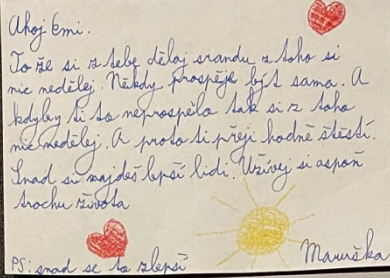 Ahoj Emi.
To že si z tebe dělaj srandu z toho si
nic nedělej. Někdy prospěje být sama. A
kdyby ti to neprospěla tak si z toho
nic nedělej. A proto ti přeji hodně štěstí.
Snad si najdeš lepší lidi. Užívej si aspoň
trochu života
PS: snad se to zlepší
Maruška